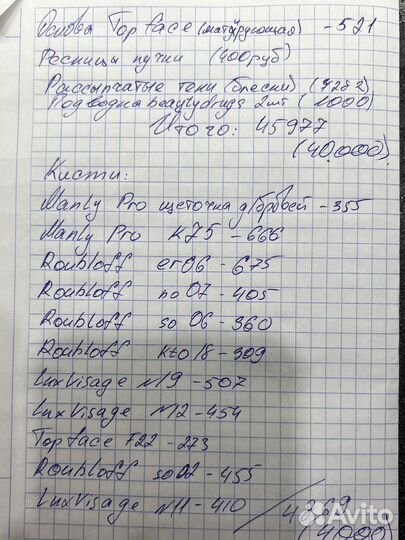 Основа Top face (матирующая) - 521
Ресницы пучки (400 руб)
Рассыпчатые тени (блески) (
Подводка beautydrugs 2шт (2000)
Итого: 45977
(40.000)
Кисти:
Manly Pro щеточка д/бровей - 355
Manly Pro K75 - 666
Roubloff er06 - 675
Roubloff no 07 - 405
Roubloff so 06 - 360
Roubloff kto 18 - 309
LuxVisage №19 - 507
LuxVisage №12 - 454
Top face F22 - 273
Roubloff so02 - 455
LuxVisage №11 - 410 / 4869
(4000)
Avito